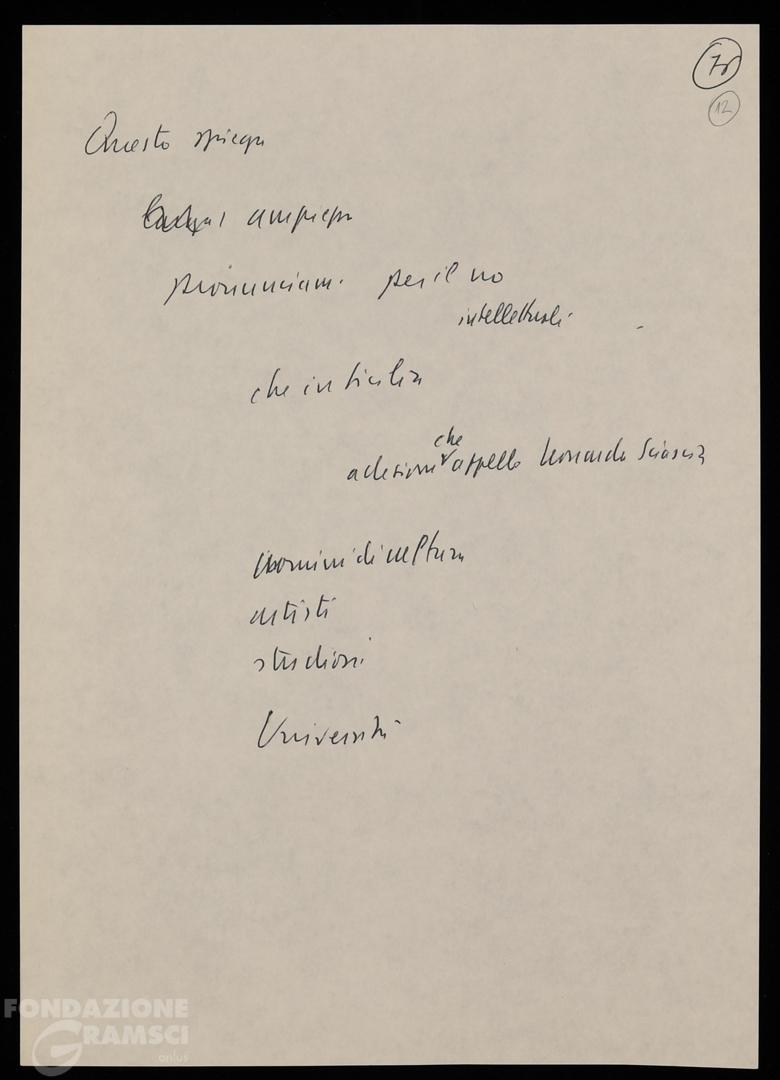 78
12
Questo spiega
ampiezza
pronunciam. per il no
intellettuali
che in Sicilia
che
adesione appello Leonardo Sciascia
uomini di cultura
artisti
studiosi
Università
FONDAZIONE
GRAMSCI
onlus